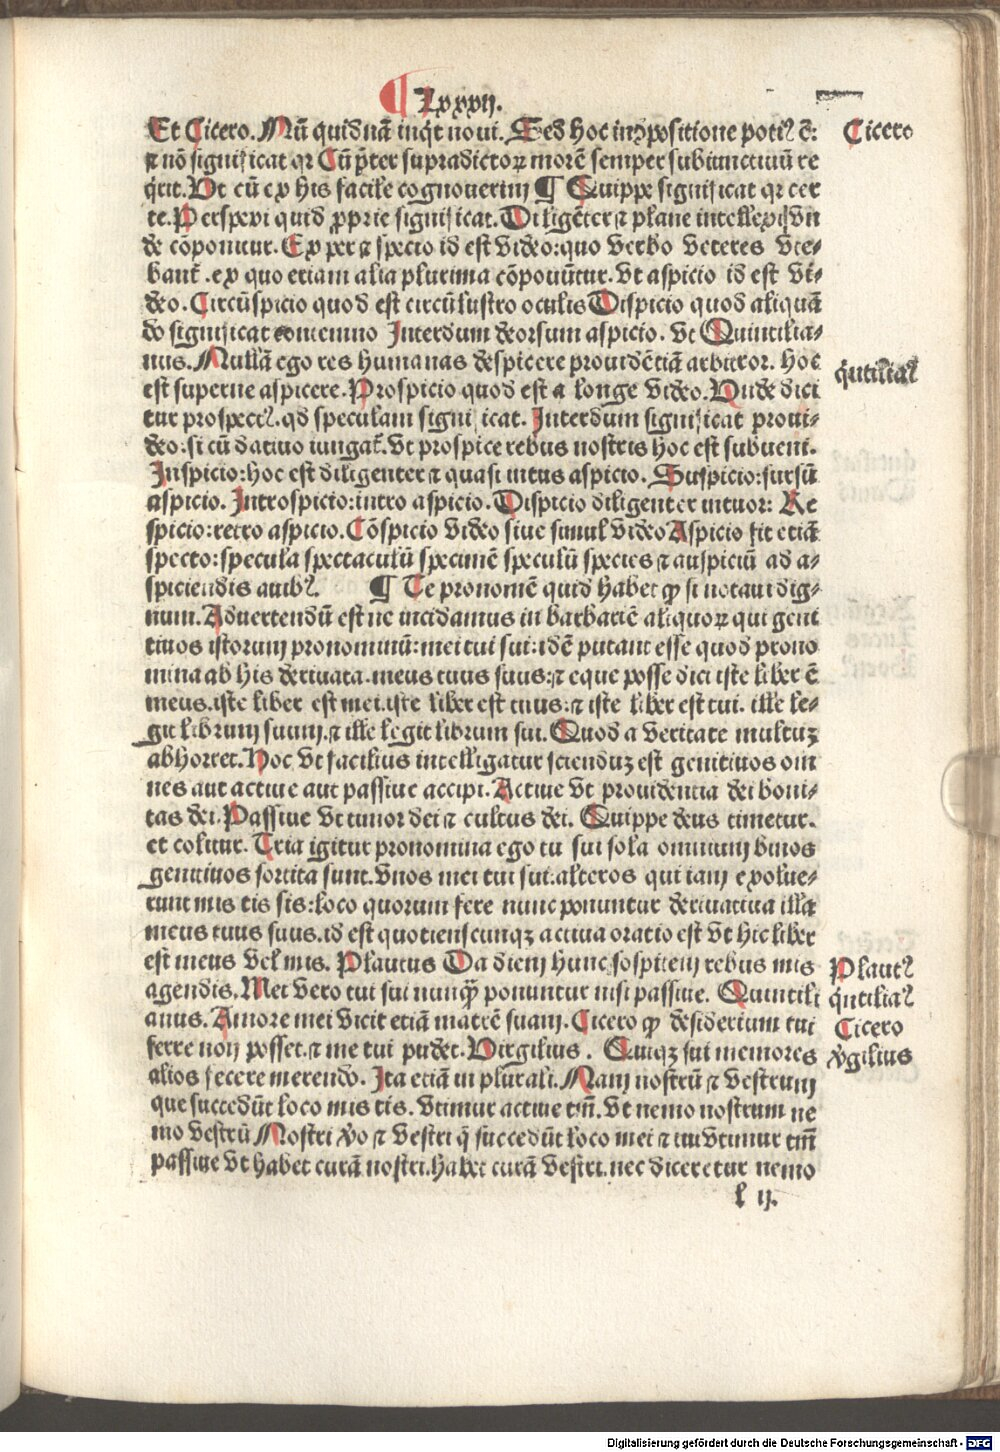 ¶ Lxxxij.
Et Cicero. Nū quidnā inq̇t noui. Sed hoc inꝓpositione potiꝰ ē:
⁊ nō significat qꝛ Cū p̄ter supradictoꝝ morē semper subiunctiuū re
q̇rit. Ut cū ex his facile cognouerim ¶ Quippe significat qꝛ cer
te. Perspexi quid ꝓprie significat. Diligēter ⁊ plane intellexi Vn
de cōponitur. Ex per ⁊ specio id est video: quo verbo veteres vte⸗
bant̄. ex quo etiam alia plurima cōponūtur. vt aspicio id est vi⸗
deo. Circūspicio quod est circūlustro oculis Dispicio quod aliquā
do significat contemno Interdum deorsum aspicio. vt Quintilia⸗
nus. Nullā ego res humanas despicere prouidētiā arbitror. hoc
est superne aspicere. Prospicio quod est a longe video. Unde dici
tur prospectꝰ. qd speculam signi icat. Interdum significat proui⸗
deo: si cū datiuo iungat̄. vt prospice rebus nostris hoc est subueni.
Inspicio: hoc est diligenter ⁊ quasi intus aspicio. Suspicio: sursū
aspicio. Introspicio: intro aspicio. Dispicio diligenter intuor: Re
spicio: retro aspicio. Cōspicio video siue simul video Aspicio fit etiā
specto: specula spectaculū specimē speculū species ⁊ auspiciū ad a⸗
spiciendis auibꝰ. ¶ Te pronomē quid habet ꝙ si notaui dig⸗
num. Aduertendū est ne incidamus in barbariē aliquoꝝ qui geni
tiuos istorum pronominū: mei tui sui: idē putant esse quod prono
mina ab his deriuata. meus tuus suus: ⁊ eque posse dici iste liber ē
meus. iste liber est mei. iste liber est tuus: ⁊ iste liber est tui. ille le⸗
git librum suum. ⁊ ille legit librum sui. Quod a veritate multuꝫ
abhorret. Hoc vt facilius intelligatur scienduꝫ est genitiuos om
nes aut actiue aut passiue accipi. Actiue vt prouidentia dei boni⸗
tas dei. Passiue vt timor dei ⁊ cultus dei. Quippe deus timetur.
et colitur. Tria igitur pronomina ego tu sui sola omnium binos
genitiuos sortita sunt. vnos mei tui sui: alteros qui iam exolue⸗
runt mis tis sis: loco quorum fere nunc ponuntur deriuatiua illa
meus tuus suus. id est quotienscunqꝫ actiua oratio est vt hic liber
est meus vel mis. Plautus Da diem hunc sospitem rebus mis
agendis. Mei vero tui sui nunꝙ̄ ponuntur nisi passiue. Quintili
anus. Amore mei vicit etiā matrē suam. Cicero ꝙ desiderium tui
ferre non posset. ⁊ me tui pudet. Virgilius. Quiqꝫ sui memores
alios fecere merendo. Ita etiā in plurali. Nam nostrū ⁊ vestrum
que succedūt loco mis tis. vtimur actiue tm̄. vt nemo nostrum ne
mo vestrū Nostri v̊o ⁊ vestri q̇ succedūt loco mei ⁊ tui vtimur tm̄
passiue vt habet curā nostri. habet curā vestri. nec diceretur nemo
l ij.
Cicero
q̇ntiliaꝰ
Plautꝰ
q̇ntiliaꝰ
Cicero
v̊gilius
Digitalisierung gefördert durch die Deutsche Forschungsgemeinschaft - DFG